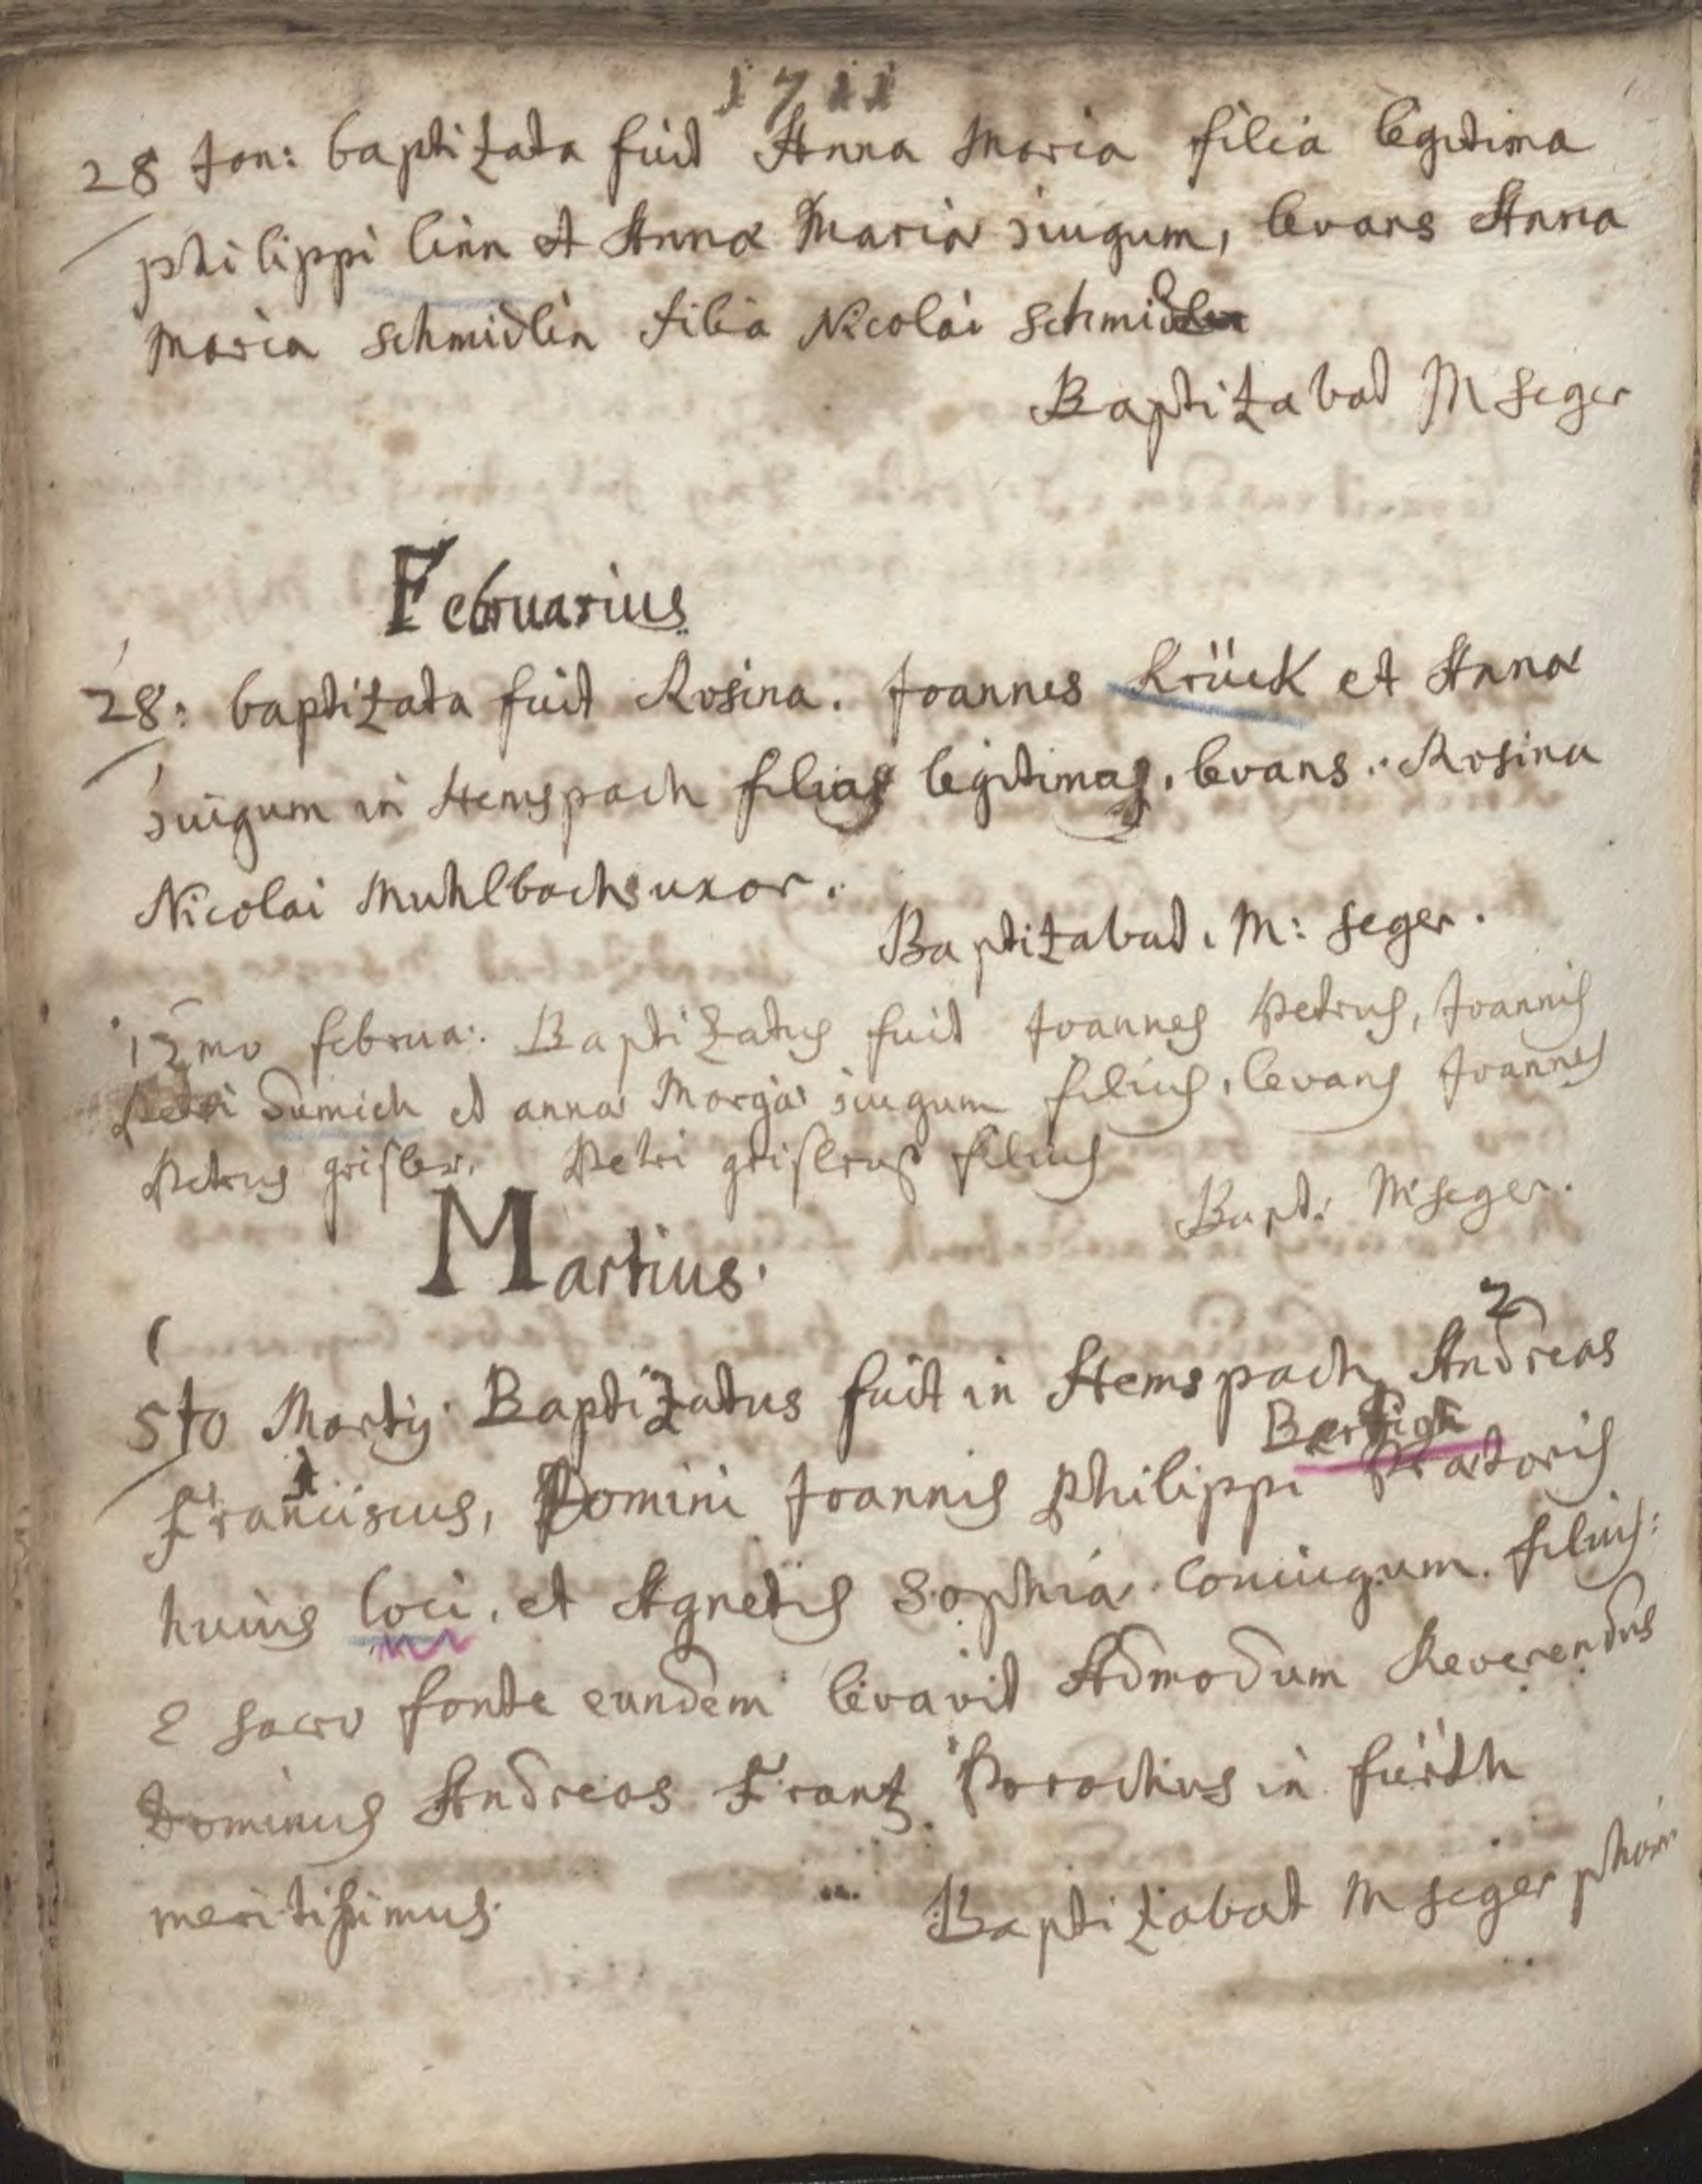 1711
28 Jan: baptizata fuit Anna Maria filia legitima
philippi linn et Annæ Mariæ jugum, levans Anna
Maria schmidlin filia Nicolai schmidl
Baptizabat M seger
Februarius
28: baptizata fuit Rosina. Joannes Krück et Annæ
jugum in Hemspach filia legitima. levans. Rosina
Nicolai Muhlbachs uxor.
Baptizabat. M: seger.
12mo februa: Baptizatus fuit Joannes Petrus, Joannis
Petri Dumich et annæ Margæ jugum filius, levans Joannes
Petrus grisler. Petri filius
Bapt: M seger.
Martius.
2
5to Martij Baptizatus fuit in Hemspach Andreas
1
Franciscus, Domini Joannis Philippi Prætoris
huius loci, et Agnetis Sophiæ Coniugum. filius:
e sacro fonte eundem levavit Admodum Reverendus
Dominus Andreas Frantz Parochus in fürth
meritissimus.
Baptizabat M seger